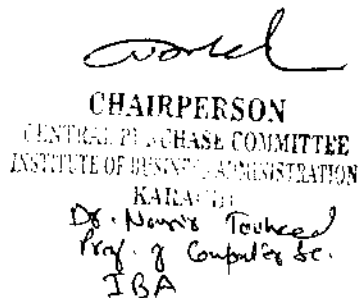 CHAIRPERSON
CENTRAL PURCHASE COMMITTEE
INSTITUTE OF BUSINESS ADMINISTRATION
KARACHI
Dr. Nasir Touheed
Prof. of Computer Sc.
IBA